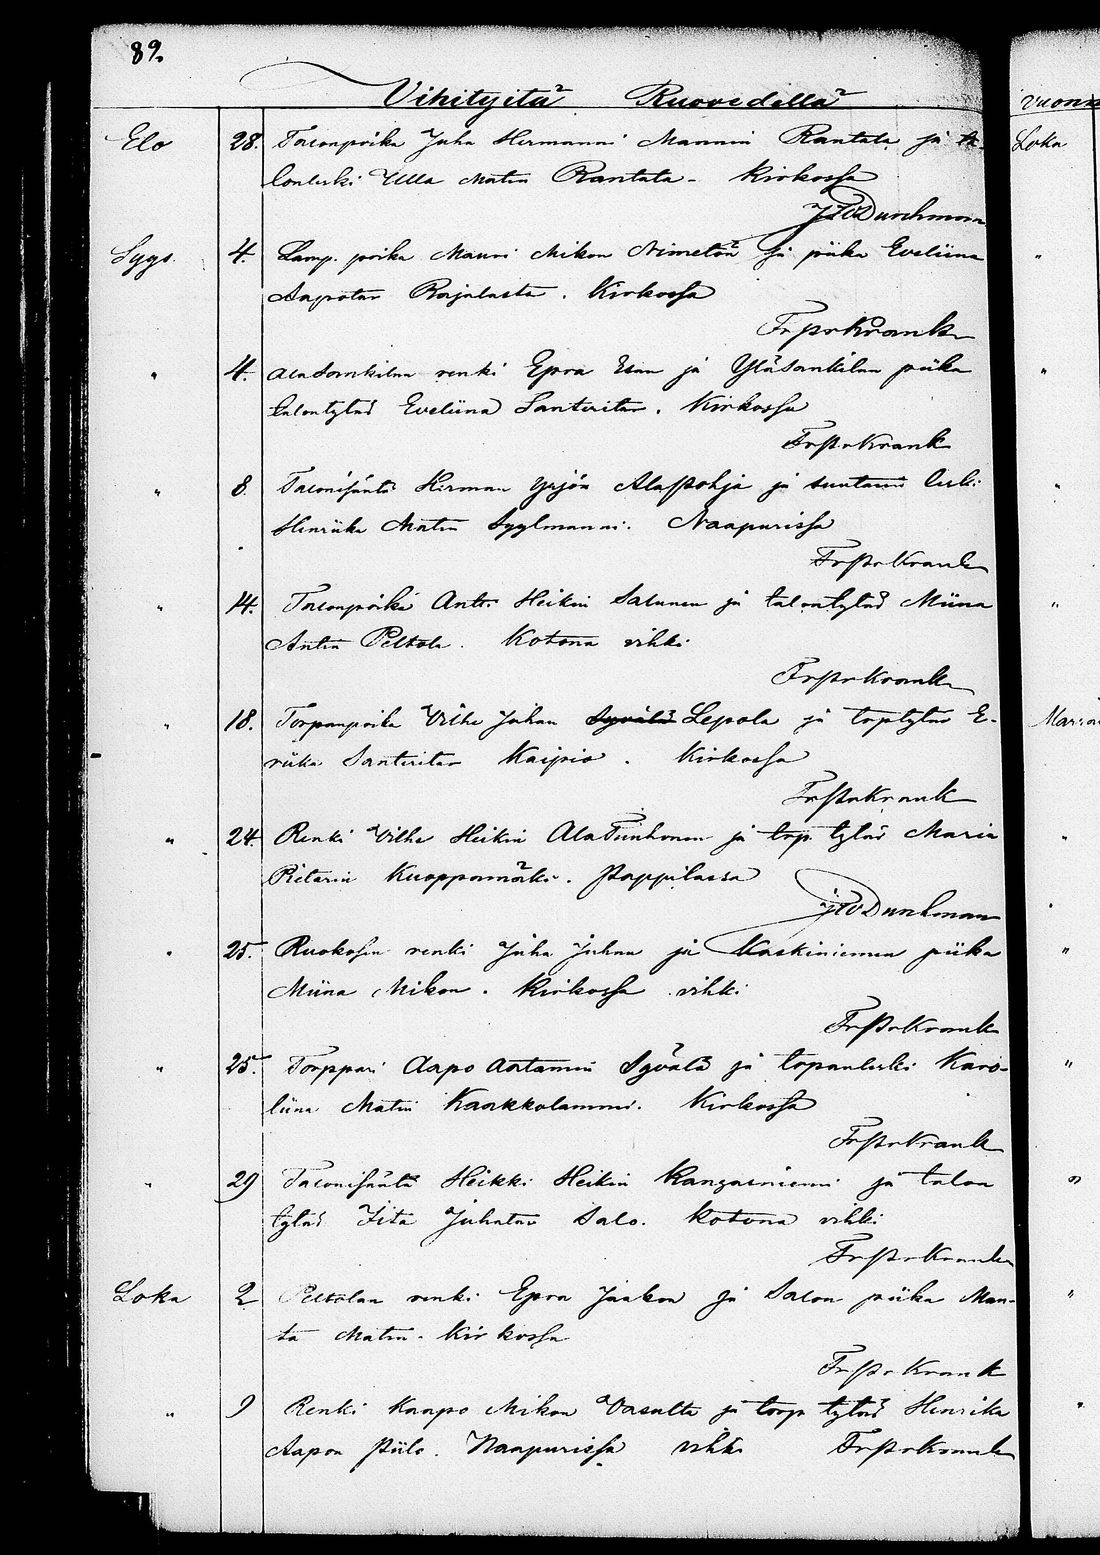 89.
Vihityitä Ruovedellä
vuonna
Elo 28. Talonpoika Juha Hermanni Mannin Rantala ja ta-
lonleski Ulla Matin Rantala - Kirkossa
J W Durchman
Loka
Syys 4. Lamp. poika Mauri Mikon Nimetön ja piika Eveliina
Aapotar Rajalasta. Kirkossa
Fr pr Krank
" 4. AlaSankilan renki Epra Esan ja YläSankilan piika
talontytär Eveliina Santeritar. Kirkossa
Fr pr Krank
" 8. Talonisäntä Herman Yrjön AlaPohja ja suutarin leski
Henriika Matin Syylmanni. Naapurissa
Fr pr Krank
" 14. Talonpoika Antti Heikin Salunen ja talontytär Miina
Antin Peltola. Kotona vihki
Fr pr Krank
" 18. Torpanpoika Vilhe Juhan Syvälä Lepola ja torptytär E-
riika Santeritar Kaipio. Kirkossa
Fr pr Krank
Marras
" 24. Renki Vilhe Heikin Ala Tuuhonen ja torp. tytär Maria
Pietarin Kuoppamäki. Pappilassa
J W Durchman
" 25. Ruokosen renki Juha Juhan ja Koskiniemen piika
Miina Mikon. Kirkossa vihki
Fr pr Krank
" 25. Torppari Aapo Aatamin Syvälä ja torpanleski Karo-
liina Matin Kaakkolammi. Kirkossa
Fr pr Krank
" 29 Talonisäntä Heikki Heikin Kangasniemi ja talon
tytär Iita Juhatar Salo. Kotona vihki
Fr pr Krank
Loka 2 Peltolan renki Epra Jaakon ja Salon piika Man-
ta Matin. Kirkossa
Fr pr Krank
" 9 Renki Kaapo Mikon Vasultta ja torp tytär Henrika
Aapon Piilo. Naapurissa vihki Fr pr Krank